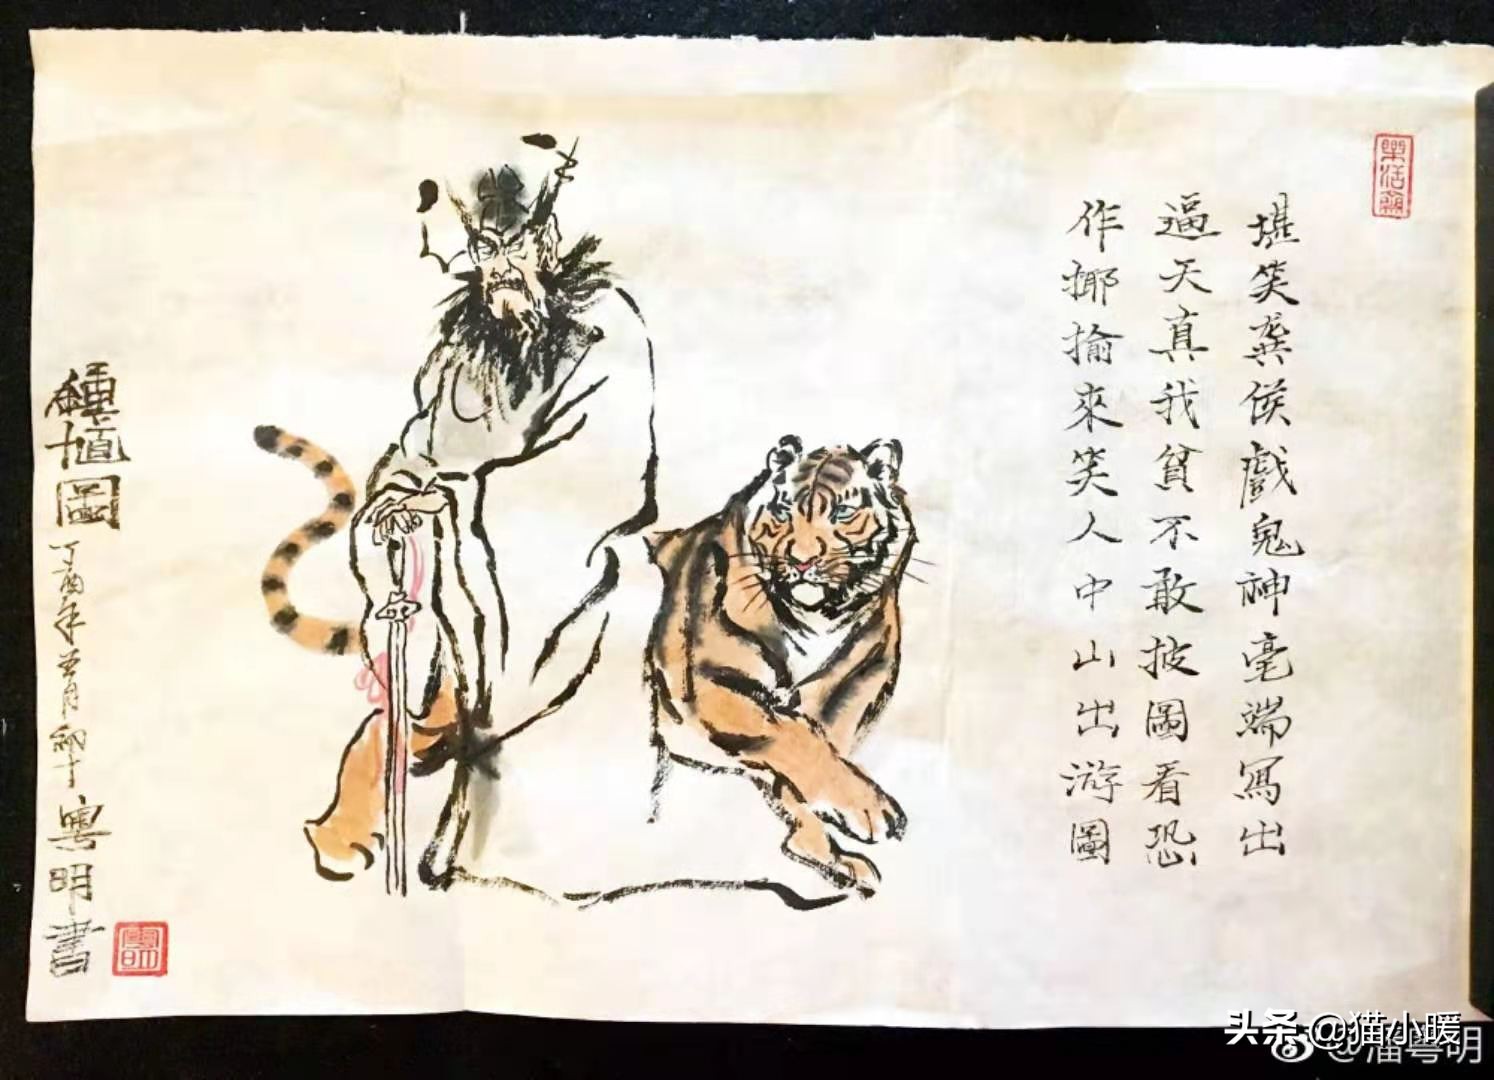 樂活
堪笑龔侯戲鬼神毫端寫出
逼天真我貧不敢披圖看恐
作揶揄來笑人中山出游圖
種馗圖
丁酉年月初十
粵明書
头条 @猫小暖
@潘粤明